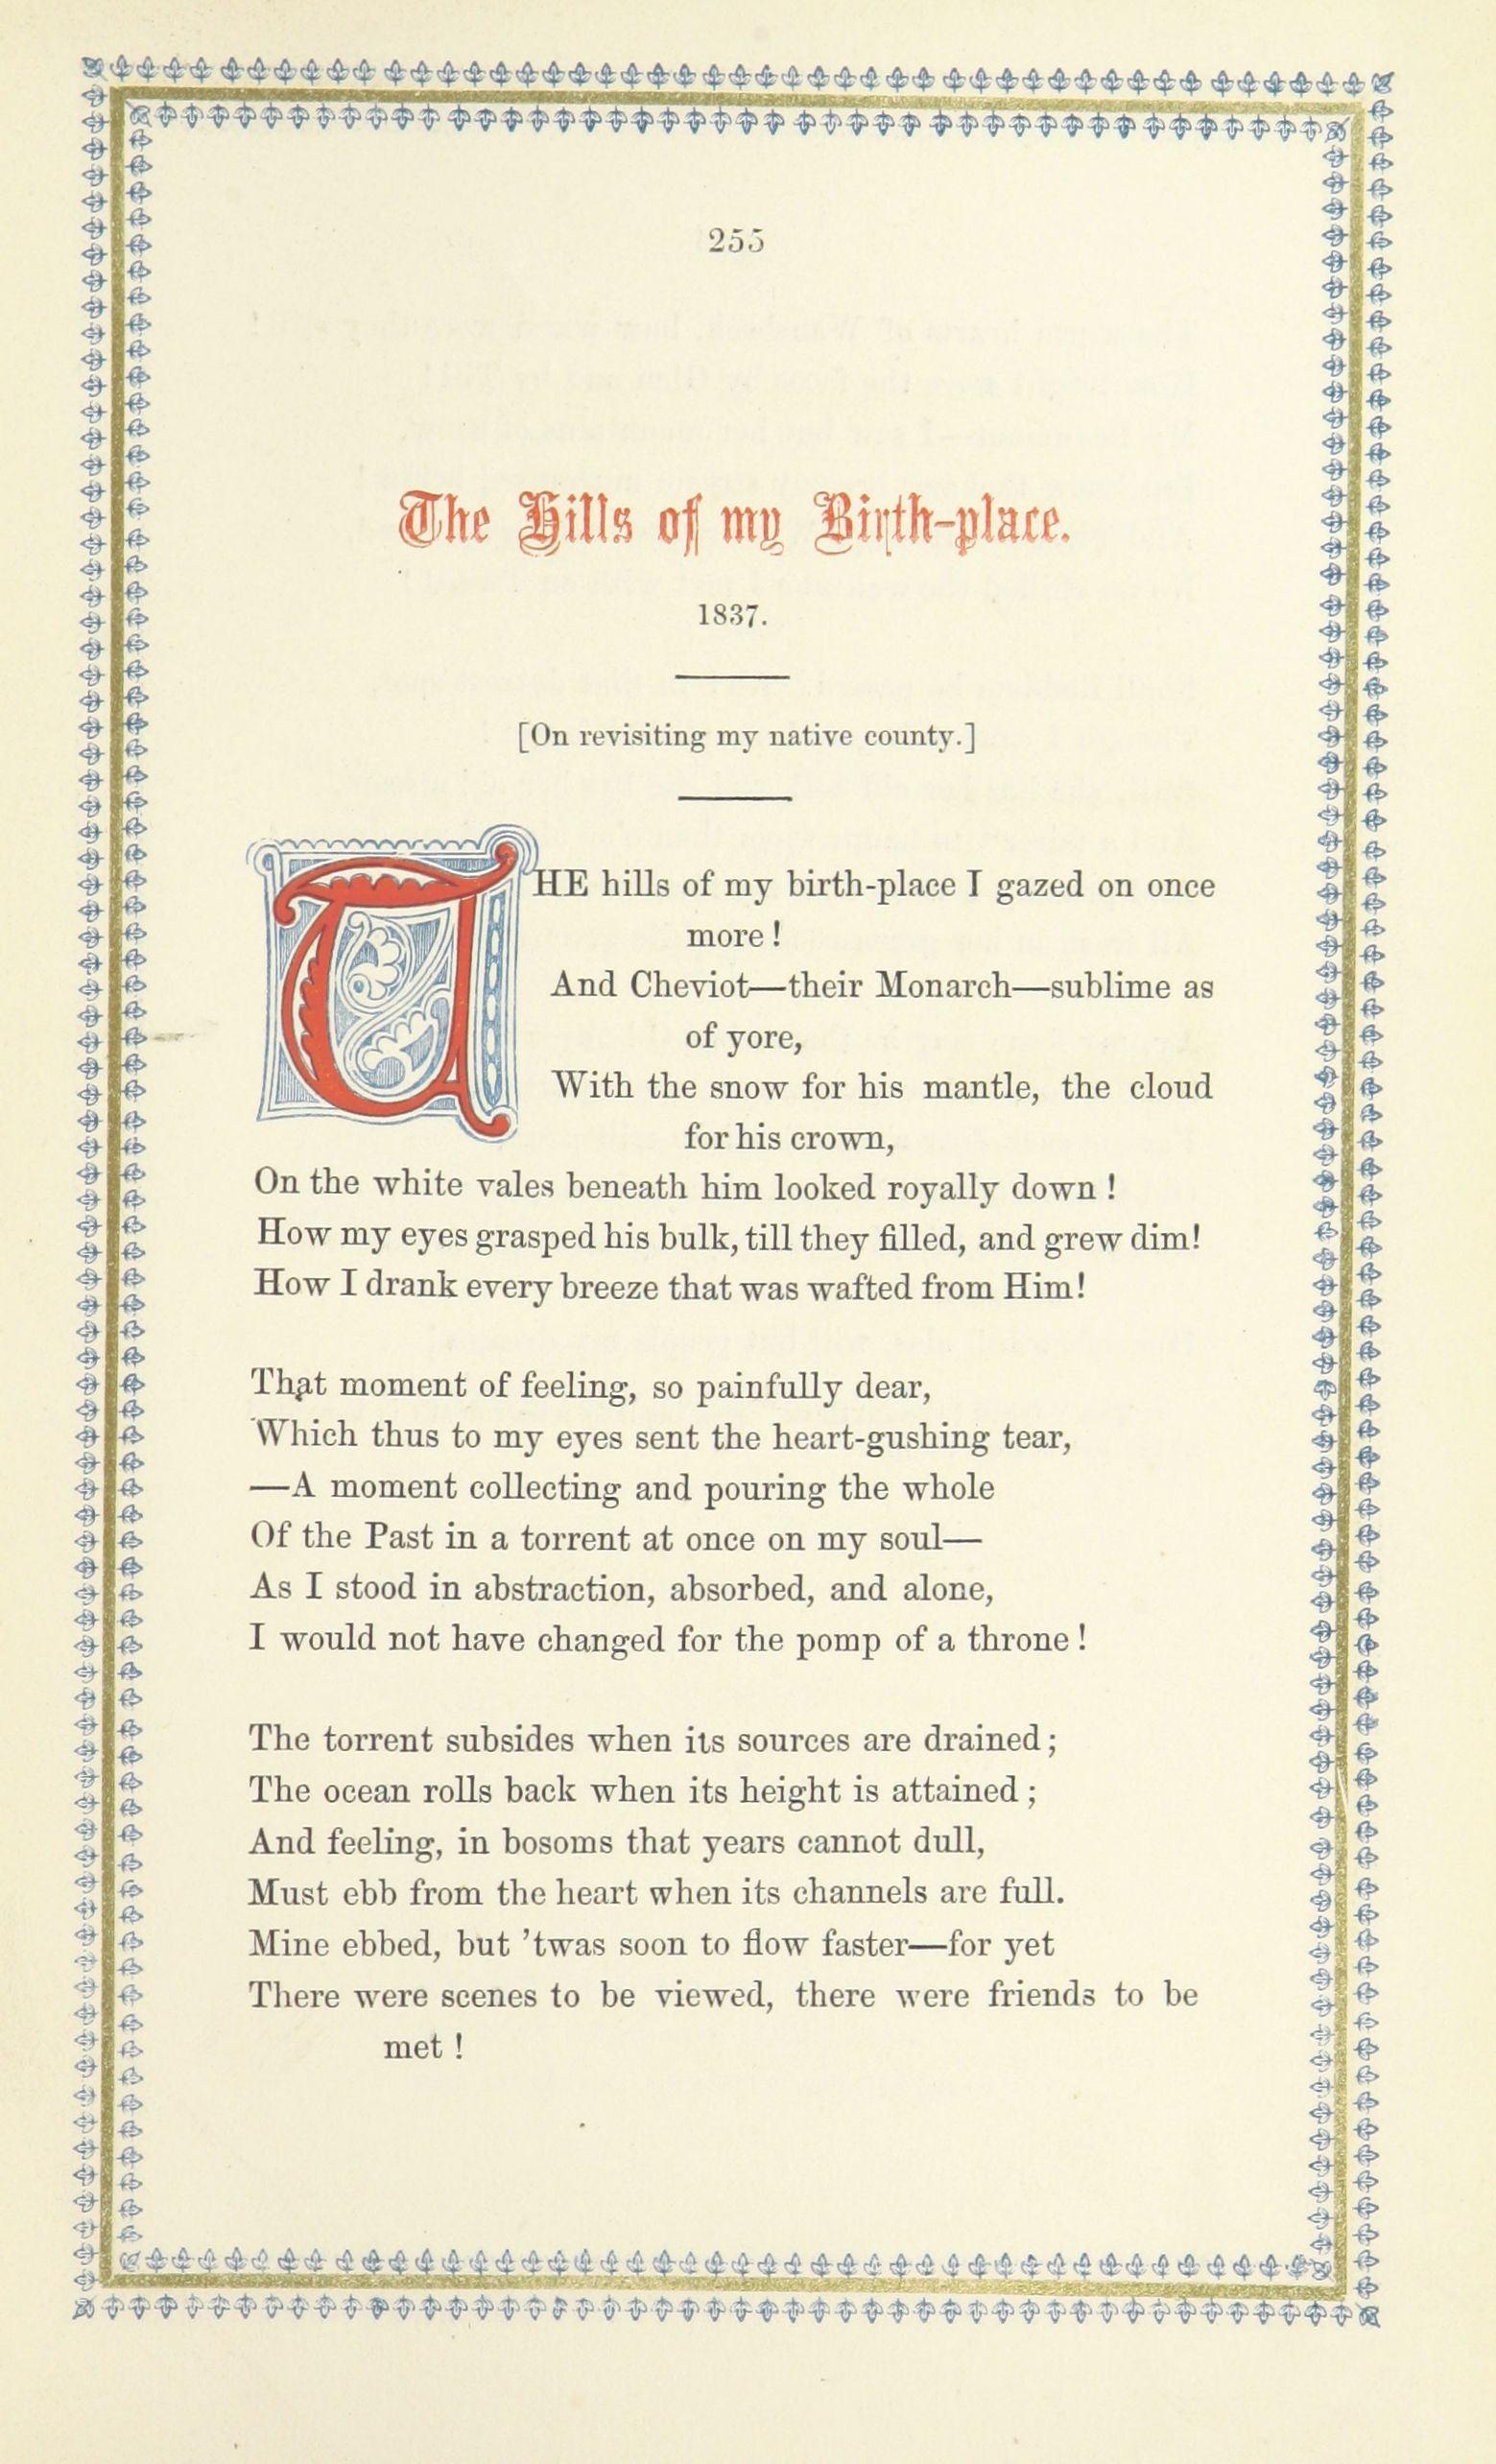 255
The Hills of my Birth-place.
1837.
[On revisiting my native county.]
THE hills of my birth-place I gazed on once
more!
And Cheviot—their Monarch—sublime as
of yore,
With the snow for his mantle, the cloud
for his crown,
On the white vales beneath him looked royally down!
How my eyes grasped his bulk, till they filled, and grew dim!
How I drank every breeze that was wafted from Him!
That moment of feeling, so painfully dear,
Which thus to my eyes sent the heart-gushing tear,
—A moment collecting and pouring the whole
Of the Past in a torrent at once on my soul—
As I stood in abstraction, absorbed, and alone,
I would not have changed for the pomp of a throne!
The torrent subsides when its sources are drained;
The ocean rolls back when its height is attained;
And feeling, in bosoms that years cannot dull,
Must ebb from the heart when its channels are full.
Mine ebbed, but 'twas soon to flow faster—for yet
There were scenes to be viewed, there were friends to be
met!